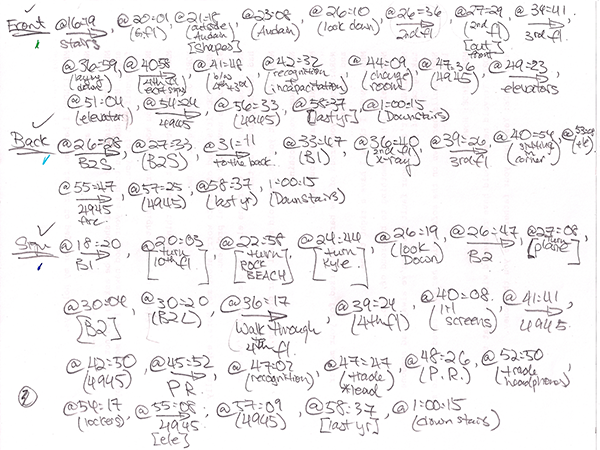 Front @16:19 @20:01 @21:18 @23:08 @26:10 @26:36 @27:29 @34:41
stairs (6.fl) (outside Audain) [shapes] (Audain) (look down) 2nd fl (2nd fl) [out front] 3rd fl.
@36:59 @4058 @41:48 @42:32 @44:09 @47:36 @49:23
(lying down) [4th fl exit signs] (b/w 4th+3rd) (recognition incapacitation) (change room) (4945) elevators
@51:04 @54:24 @56:33 @58:37 @1:00:15
(elevator) 4945 (4945) [last yr] (Downstairs)
Back @26:28 @27:33 @31:11 @33:47 @36:40 @39:26 @40:54 @53:08
B2S (B2S) to the back (B1) (2nd fl x-ray) 3rd fl. (sitting in corner)
@55:47 @57:25 @58:37 1:00:15
4945 (4945) (last yr) (Downstairs)
Sign @18:20 @20:03 @22:58 @24:44 @26:19 @26:47 @27:08
B1 [turn 10th fl] [turn ROCK BEACH] [turn Kyle] (look Down) B2 [turn plane]
@30:04 @30:20 @36:17 @39:24 @40:08 @41:41
[B2] (B2L) walk through 4th fl. (4th fl) (1+1 screens) 4945
@42:50 @45:52 @47:02 @47:47 @48:26 @52:50
(4945) PR (recognition) (trade head) (P.R.) (trade headphones)
@54:17 @55:08 @57:09 @58:37 @1:00:15
(lockers) 4945 [ele] (4945) [last yr] (down stairs)